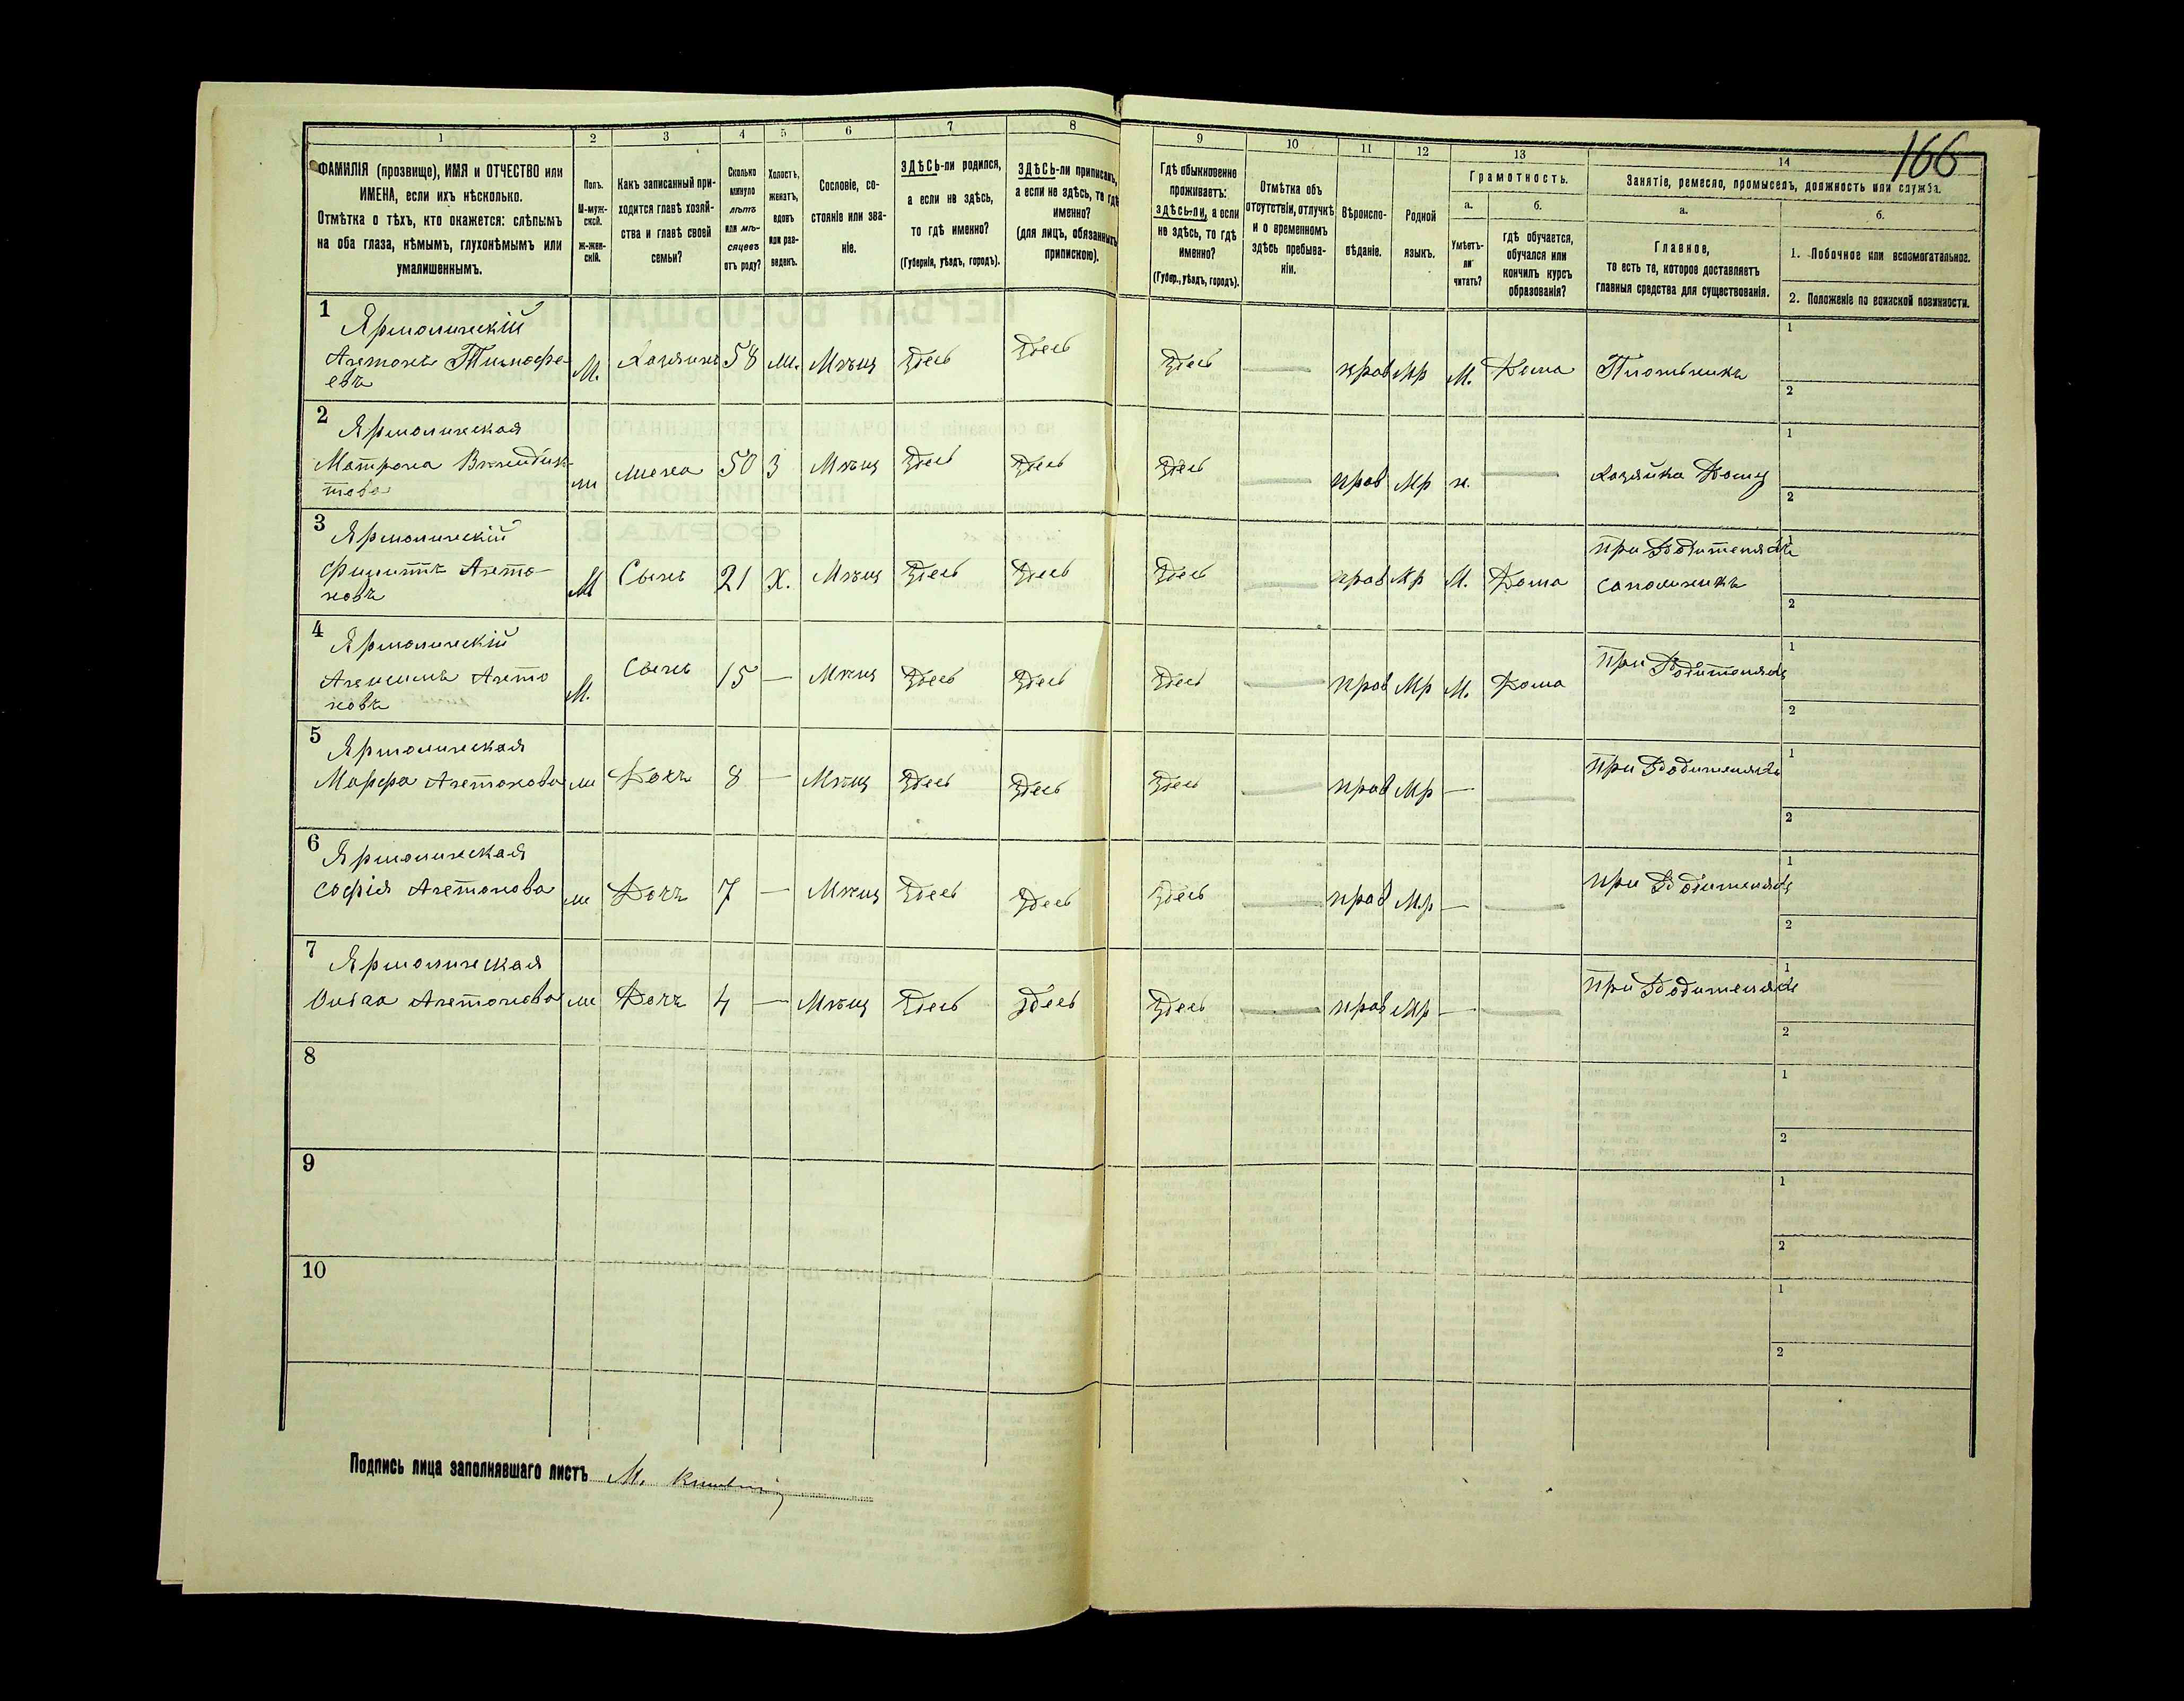 166
1 2 3 4 5 6 7 8 9 10 11 12 13 14
ФАМИЛІЯ (прозвище), ИМЯ и ОТЧЕСТВО или
ИМЕНА, если ихъ нѣсколько.
Отмѣтка о тѣхъ, кто окажется: слѣпымъ
на оба глаза, нѣмымъ, глухонѣмымъ или
умалишеннымъ.
Полъ.
М-муж-
ской.
Ж-жен-
скій.
Какъ записанный при-
ходится главѣ хозяй-
ства и главѣ своей
семьи?
Сколько
минуло
лѣтъ
или мѣ-
сяцевъ
отъ роду?
Холостъ,
женатъ,
вдовъ
или раз-
веденъ.
Сословіе, со-
стояніе или зва-
ніе.
ЗДѢСЬ-ли родился,
а если не здѣсь,
то гдѣ именно?
(Губернія, уѣздъ, городъ).
ЗДѢСЬ-ли приписанъ,
а если не здѣсь, то гдѣ
именно?
(для лицъ, обязанныхъ
припискою).
Гдѣ обыкновенно
проживаетъ:
здѣсь-ли, а если
не здѣсь, то гдѣ
именно?
(Губер., уѣздъ, городъ).
Отмѣтка объ
отсутствіи, отлучкѣ
и о временномъ
здѣсь пребыва-
ніи.
Вѣроиспо-
вѣданіе.
Родной
языкъ.
Грамотность.
а.
Умѣетъ-
ли
читать?
б.
гдѣ обучается,
обучался или
кончилъ курсъ
образованія?
Занятіе, ремесло, промыселъ, должность или служба.
а.
Главное,
то есть то, которое доставляетъ
главныя средства для существованія.
б.
1. Побочное или вспомогательное.
2. Положеніе по воинской повинности.
1
Ярмолинскій
Антонъ Тимофе-
евъ
М. Хозяинъ 58 ж. Мѣщ Здесь Здесь Здесь — прав Мр М. Дома Плотникъ
1
2
2
Ярмолинская
Матрона Венедик-
това
ж жена 50 З Мѣщ Здесь Здесь Здесь — прав Мр н. — хозяйка Дому
1
2
3
Ярмолинскій
Филиппъ Анто-
новъ
М Сынъ 21 Х. Мѣщ Здесь Здесь Здесь — прав Мр М. Дома при Родителяхъ
сапожникъ
1
2
4
Ярмолинскій
Анто
новъ
М. Сынъ 15 — Мѣщ Здесь Здесь Здесь — прав Мр М. Дома при Родителяхъ
1
2
5
Ярмолинская
Марфа Антонова ж Дочь 8 — Мѣщ Здесь Здесь Здесь — прав Мр — — при Родителяхъ
1
2
6
Ярмолинская
Софія Антонова ж Дочь 7 — Мѣщ Здесь Здесь Здесь — прав Мр — — при Родителяхъ
1
2
7
Ярмолинская
Ольга Антонова ж Дочь 4 — Мѣщ Здесь здесь Здесь — прав Мр — — при Родителяхъ
1
2
8
1
2
9
1
2
10
1
2
Подпись лица заполнявшаго листъ М.